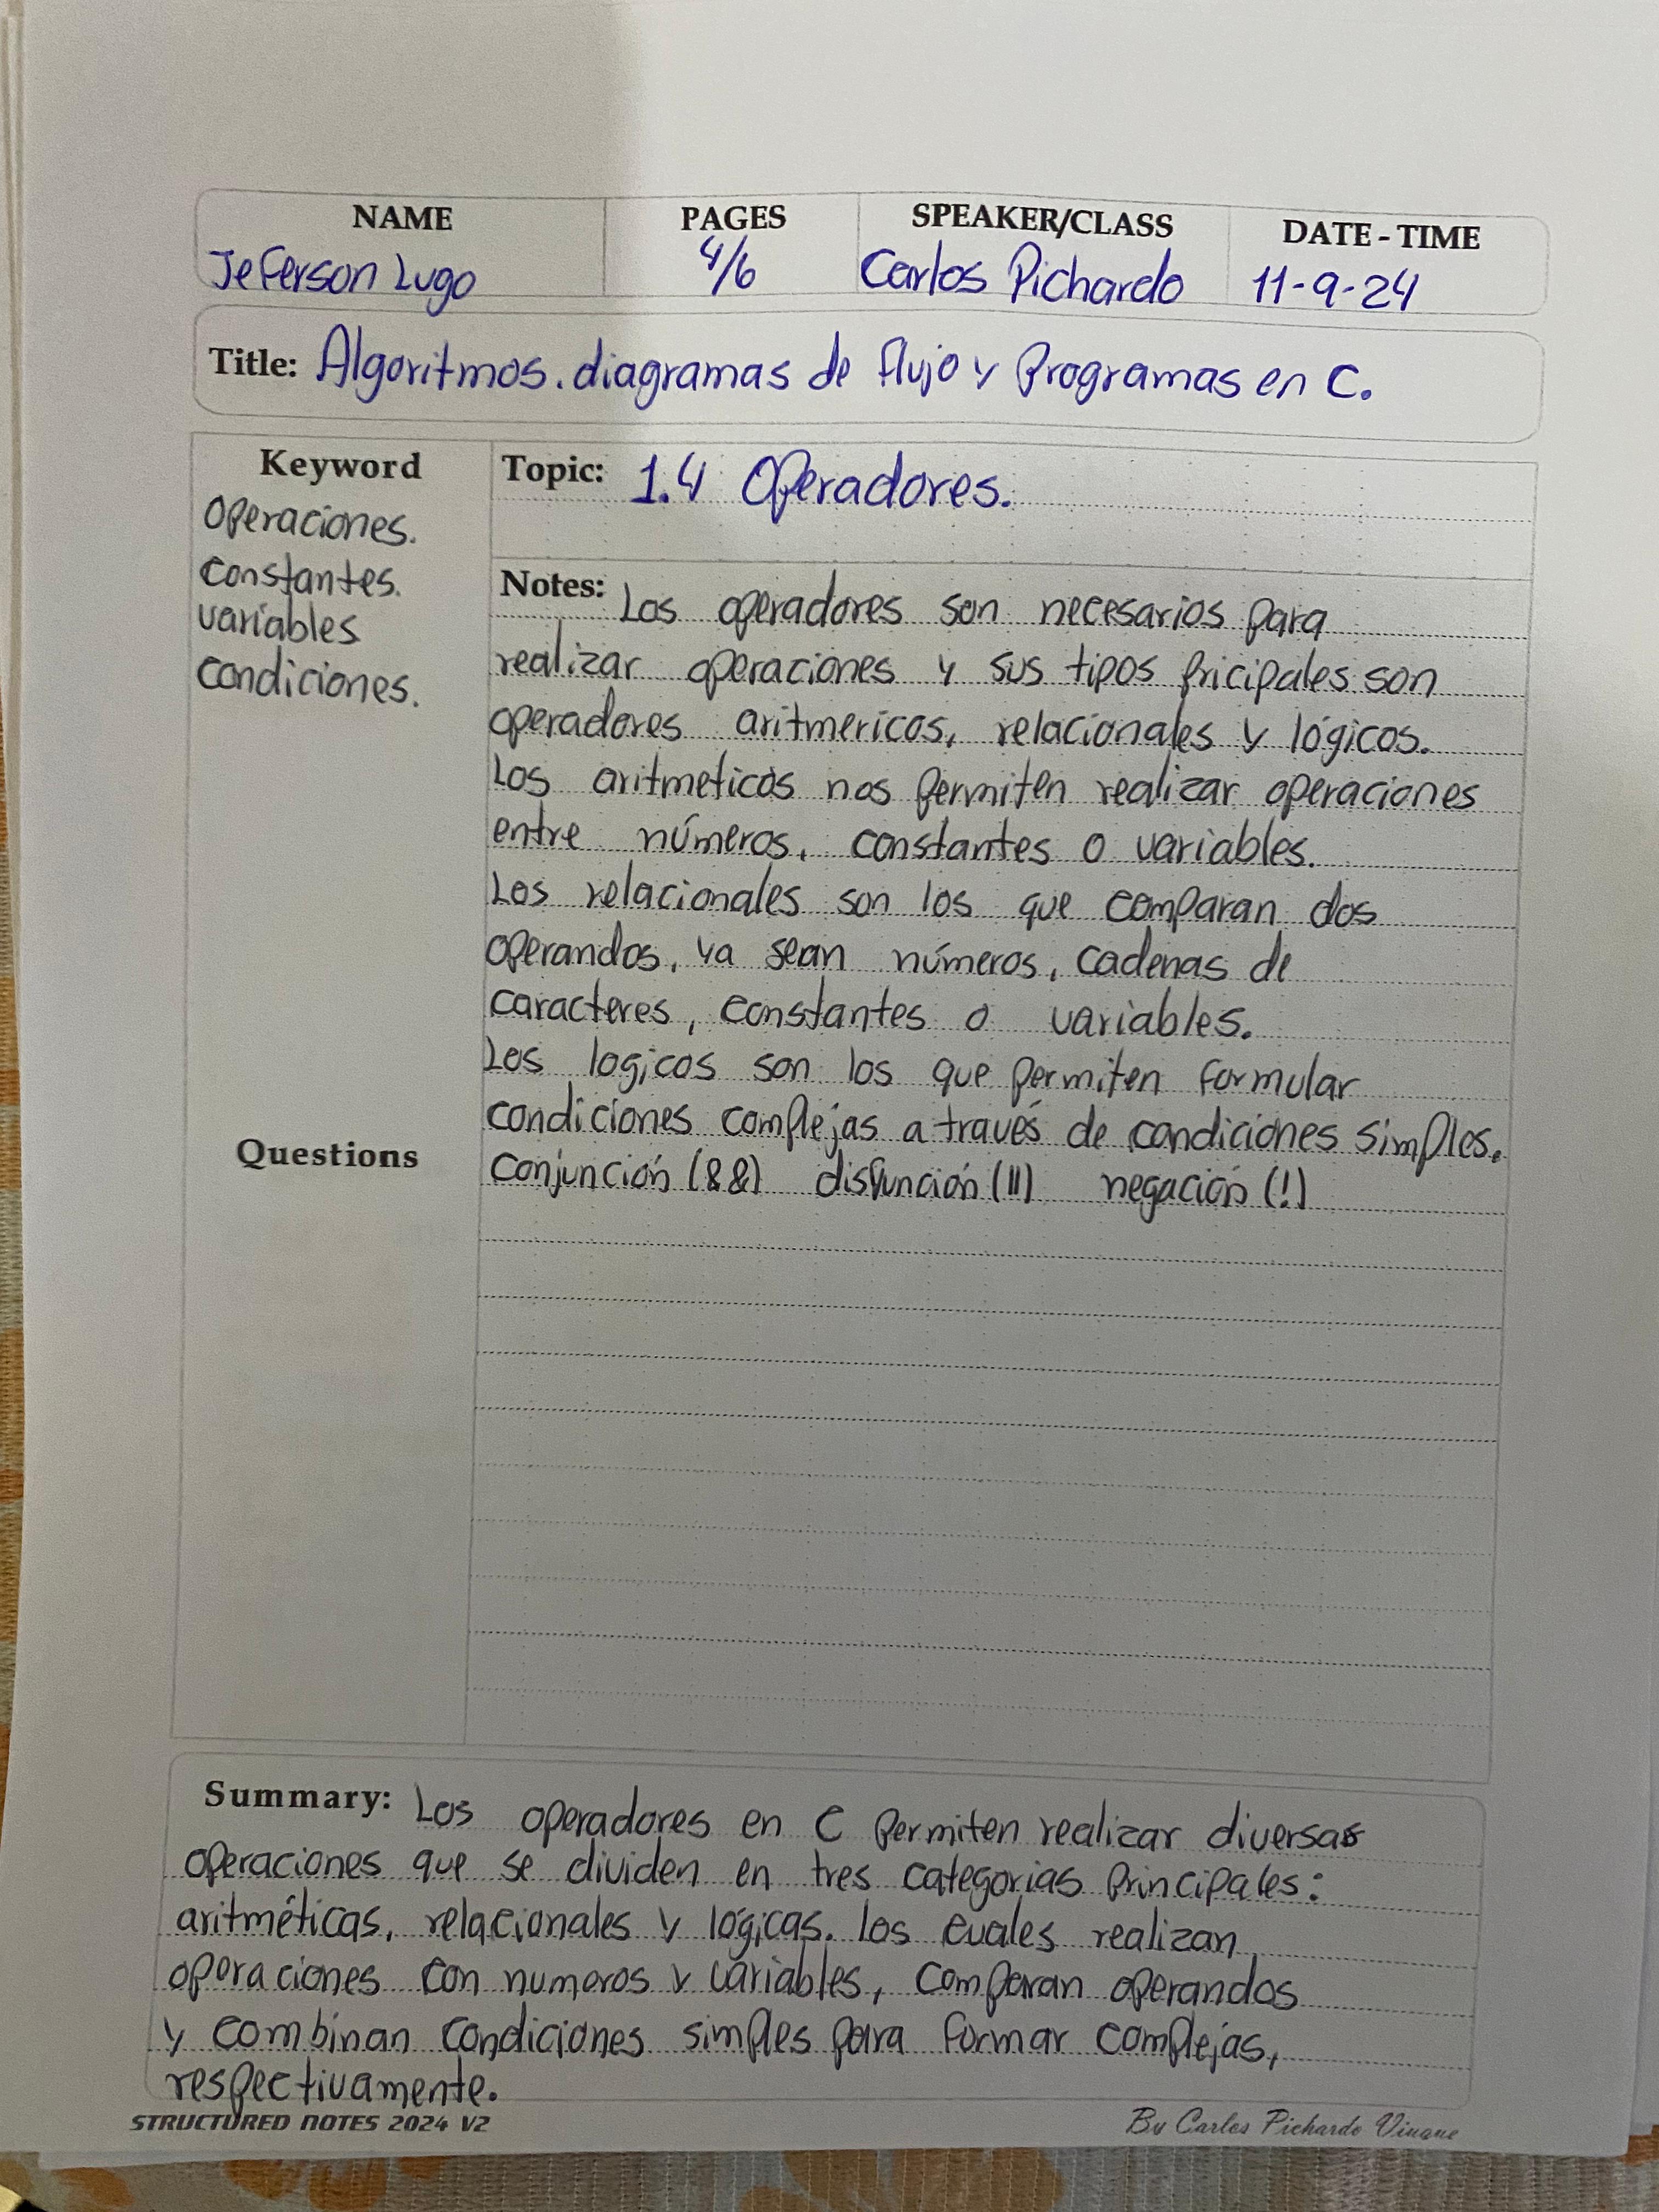 NAME PAGES SPEAKER/CLASS DATE - TIME
Jeferson Lugo 4/6 Carlos Pichardo 11-9-24
Title: Algoritmos. diagramas de flujo y Programas en C.
Keyword
Operaciones.
Constantes.
variables
condiciones.
Questions
Topic: 1.4 Operadores.
Notes: Los operadores son necesarios para
realizar operaciones y sus tipos pricipales son
operadores aritmericos, relacionales y lógicos.
Los aritmeticos nos permiten realizar operaciones
entre números, constantes o variables.
Los relacionales son los que comparan dos
operandos, ya sean números, cadenas de
caracteres, constantes o variables.
Los logicos son los que permiten formular
condiciones complejas a través de condiciones simples.
Conjunción (&&) disyunción (||) negación (!)
Summary: Los operadores en C permiten realizar diversas
operaciones que se dividen en tres categorias principales:
aritméticas, relacionales y lógicas. los cuales realizan
operaciones con numeros y variables, comparan operandos
y combinan condiciones simples para formar complejas,
respectivamente.
STRUCTURED NOTES 2024 V2 By Carlos Pichardo Viuque